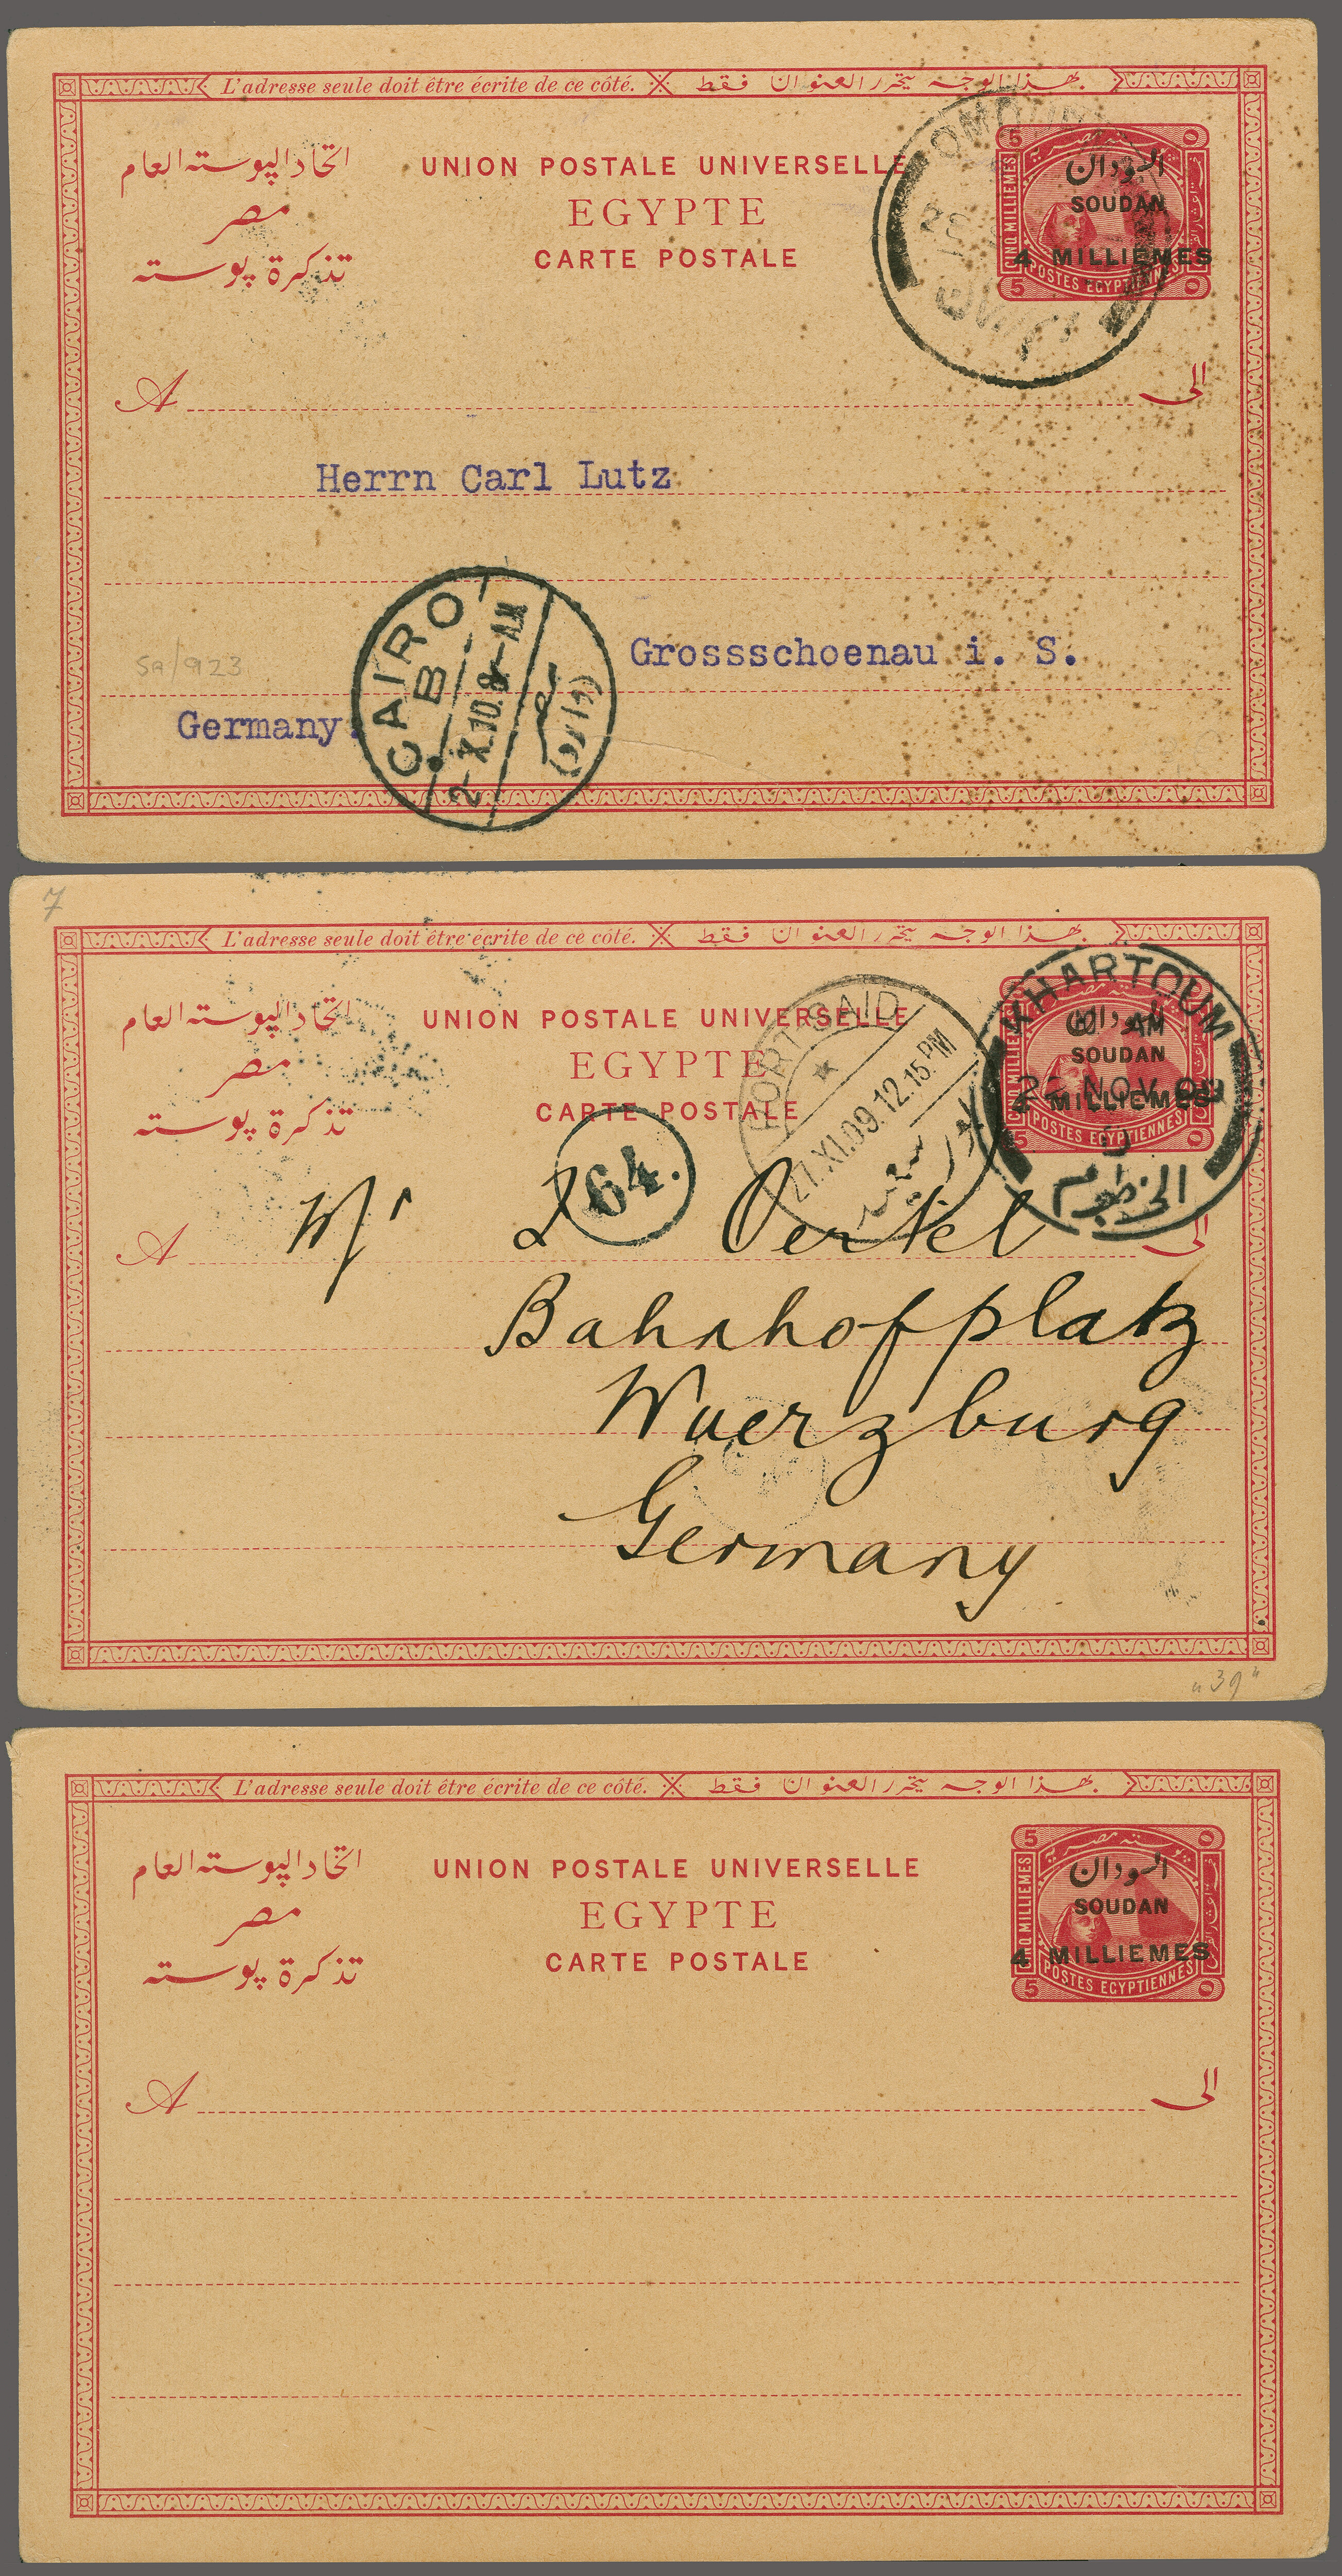 L'adresse seule doit être écrite de ce côté. بهذا الوجه يتحرر العنوان فقط
اتحاد البوسته العام
مصر
تذكرة بوسته
UNION POSTALE UNIVERSELLE
EGYPTE
CARTE POSTALE
5
بوستة مصر
السودان
SOUDAN
4 MILLIEMES
POSTES EGYPTIENNES
5
A الى
Herrn Carl Lutz
Grossschoenau i. S.
Germany.
Sa/923
CAIRO
B
2-X.10.8-AM
7
L'adresse seule doit être écrite de ce côté. بهذا الوجه يتحرر العنوان فقط
اتحاد البوسته العام
مصر
تذكرة بوسته
UNION POSTALE UNIVERSELLE
EGYPTE
CARTE POSTALE
السودان
SOUDAN
4 MILLIEMES
POSTES EGYPTIENNES
5
KHARTOUM
AM
NOV 09
الخرطوم
PORT-SAID
27.XI.09.12.15.PM
بور سعيد
64.
A الى
Mr L Oertel
Bahnhofplatz
Wuerzburg
Germany
"39"
L'adresse seule doit être écrite de ce côté. بهذا الوجه يتحرر العنوان فقط
اتحاد البوسته العام
مصر
تذكرة بوسته
UNION POSTALE UNIVERSELLE
EGYPTE
CARTE POSTALE
5
بوستة مصر
السودان
SOUDAN
4 MILLIEMES
POSTES EGYPTIENNES
5
A الى